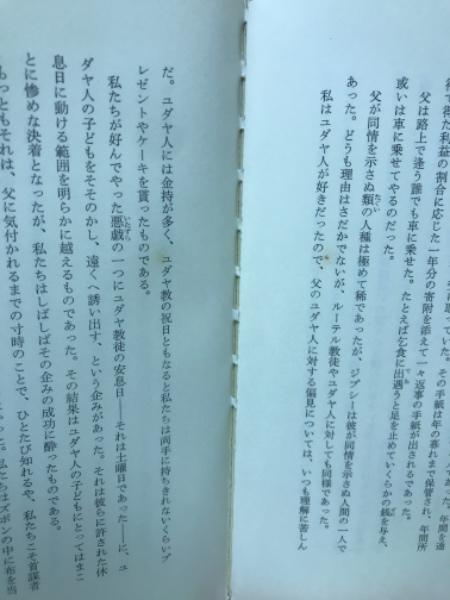 待て得た利益の割合に応じた一年分の寄附を添えて一々返事の手紙が出されるであった。
ていた。その手紙は年の暮れまで保管され、年間所
父は路上で逢う誰でも車に乗せた。たとえば乞食に出遇うと足を止めていくらかの銭を与え、
或いは車に乗せてやるのだった。
父が同情を示さぬ類の人種は極めて稀であったが、ジプシーは彼が同情を示さぬ人間の一人で
あった。どうも理由はさだかでないが、ルーテル教徒やユダヤ人に対しても同様であった。
私はユダヤ人が好きだったので、父のユダヤ人に対する偏見については、いつも理解に苦しん
だ。ユダヤ人には金持が多く、ユダヤ教の祝日ともなると私たちは両手に持ちきれないくらいプ
レゼントやケーキを貰ったものである。
私たちが好んでやった悪戯の一つにユダヤ教徒の安息日――それは土曜日であった――に、ユ
ダヤ人の子どもをそそのかし、遠くへ誘い出す、という企みがあった。それは彼らに許された休
息日に動ける範囲を明らかに越えるものであった。その結果はユダヤ人の子どもにとってはまこ
とに惨めな決着となったが、私たちはしばしばその企みの成功に酔ったものである。
もっともそれは、父に気付かれるまでの寸時のことで、ひとたび知れるや、私たちこそ首謀者
った。私たちはズボンの中に布を当